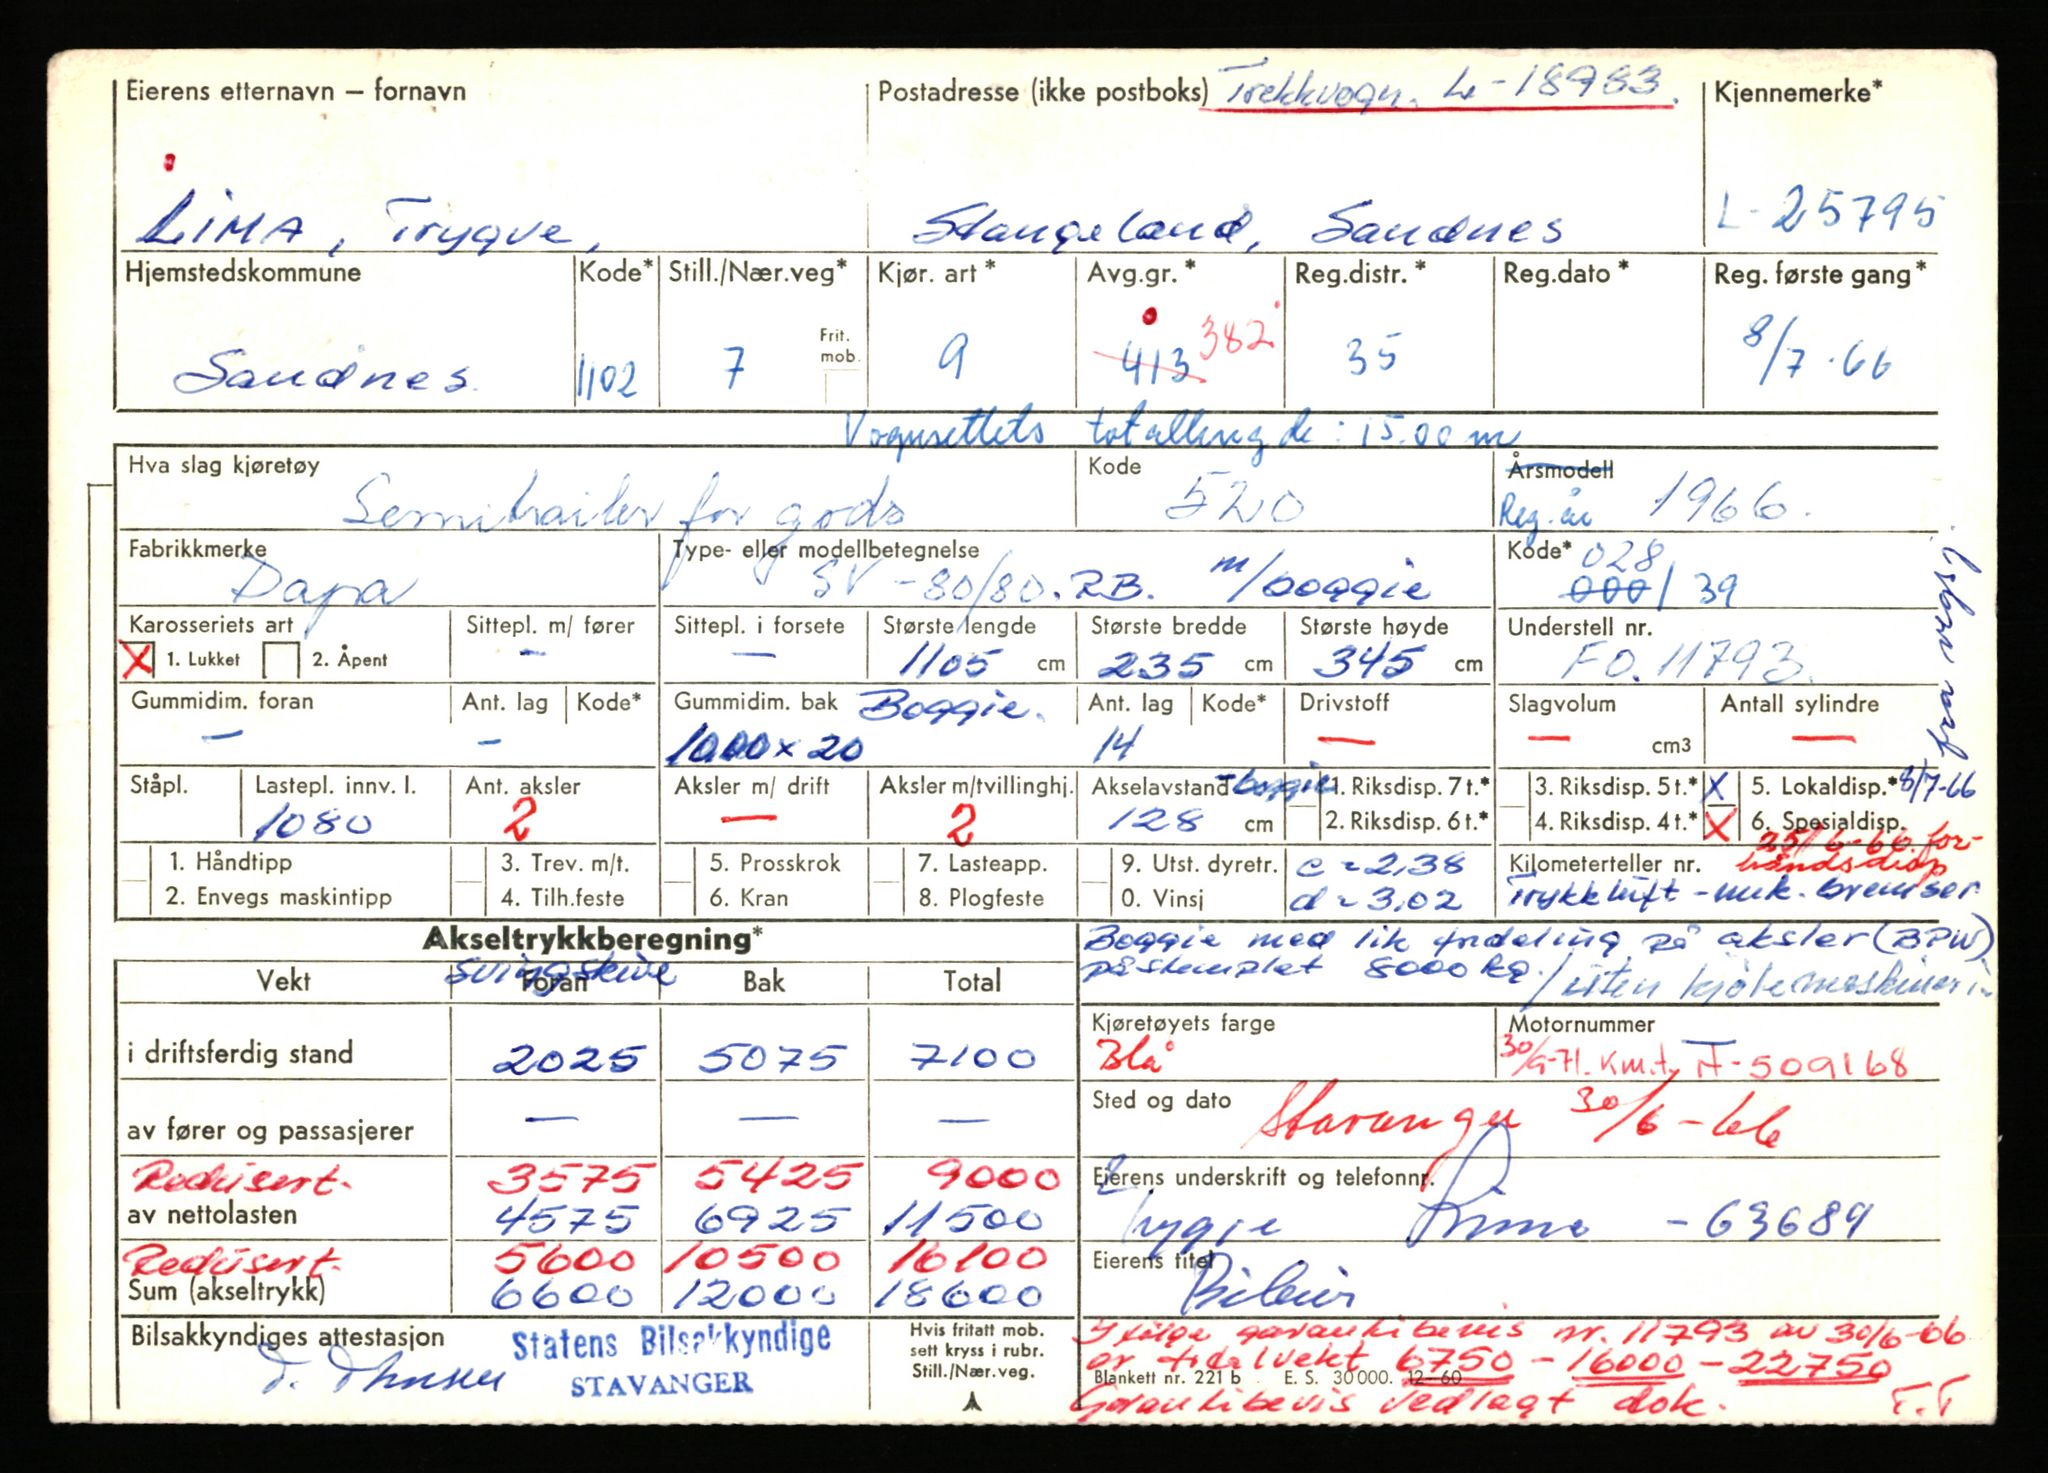 Eierens etternavn – fornavn Postadresse (ikke postboks) Trekkvogn. L-18983. Kjennemerke*
LIMA, Trygve, Stangeland, Sandnes L-25795
Hjemstedskommune Kode* Still./Nær.veg* Kjør. art* Avg.gr.* Reg.distr.* Reg.dato* Reg. første gang*
Sandnes. 1102 7 Frit. mob. 9 413 382 35 8/7-66
Vognsettets totallengde: 15.00 m
Hva slag kjøretøy Kode Årsmodell
Semitrailer for gods 520 Reg. år 1966.
Fabrikkmerke Type- eller modellbetegnelse Kode* 028
Dapa SV-80/80. RB. m/boggie 000/39
Karosseriets art Sittepl. m/ fører Sittepl. i forsete Største lengde Største bredde Største høyde Understell nr.
X 1. Lukket 2. Åpent – – 1105 cm 235 cm 345 cm FO. 11793.
Gummidim. foran Ant. lag Kode* Gummidim. bak Boggie. Ant. lag Kode* Drivstoff Slagvolum Antall sylindre
– – 1000 x 20 14 – – cm3 –
Ståpl. Lastepl. innv. l. Ant. aksler Aksler m/ drift Aksler m/tvillinghj. Akselavstand - boggie 1. Riksdisp. 7 t.* 3. Riksdisp. 5 t.* X 5. Lokaldisp.* 8/7-66
1080 2 – 2 128 cm 2. Riksdisp. 6 t.* 4. Riksdisp. 4 t.* X 6. Spesialdisp.
25/6-66. for-
håndsdisp
1. Håndtipp 3. Trev. m/t. 5. Prosskrok 7. Lasteapp. 9. Utst. dyretr. c = 2,38 Kilometerteller nr.
2. Envegs maskintipp 4. Tilh.feste 6. Kran 8. Plogfeste 0. Vinsj d = 3,02 Trykkluft - mek. bremser
Akseltrykkberegning* Boggie med lik fordeling på aksler (BPW)
påstemplet 8000 kg. / uten kjølemaskineri
Vekt Svingskive Foran Bak Total
Kjøretøyets farge Motornummer
i driftsferdig stand 2025 5075 7100 Blå 30/9-71. Km.t. N-509168
av fører og passasjerer – – – Sted og dato Stavanger 30/6-66
Redusert. 3575 5425 9000 Eierens underskrift og telefonnr.
av nettolasten 4575 6925 11500 Trygve Lima - 63689
Redusert. 5600 10500 16100 Eierens titel
Sum (akseltrykk) 6600 12000 18600 Bileier
Bilsakkyndiges attestasjon Statens Bilsakkyndige
STAVANGER
Hvis fritatt mob.
sett kryss i rubr.
Still./Nær.veg.
Ifølge garantibevis nr. 11793 av 30/6-66
er totalvekt 6750 - 16000 - 22750
Blankett nr. 221 b E. S. 30 000. 12-60
Garantibevis vedlagt dok. T.T